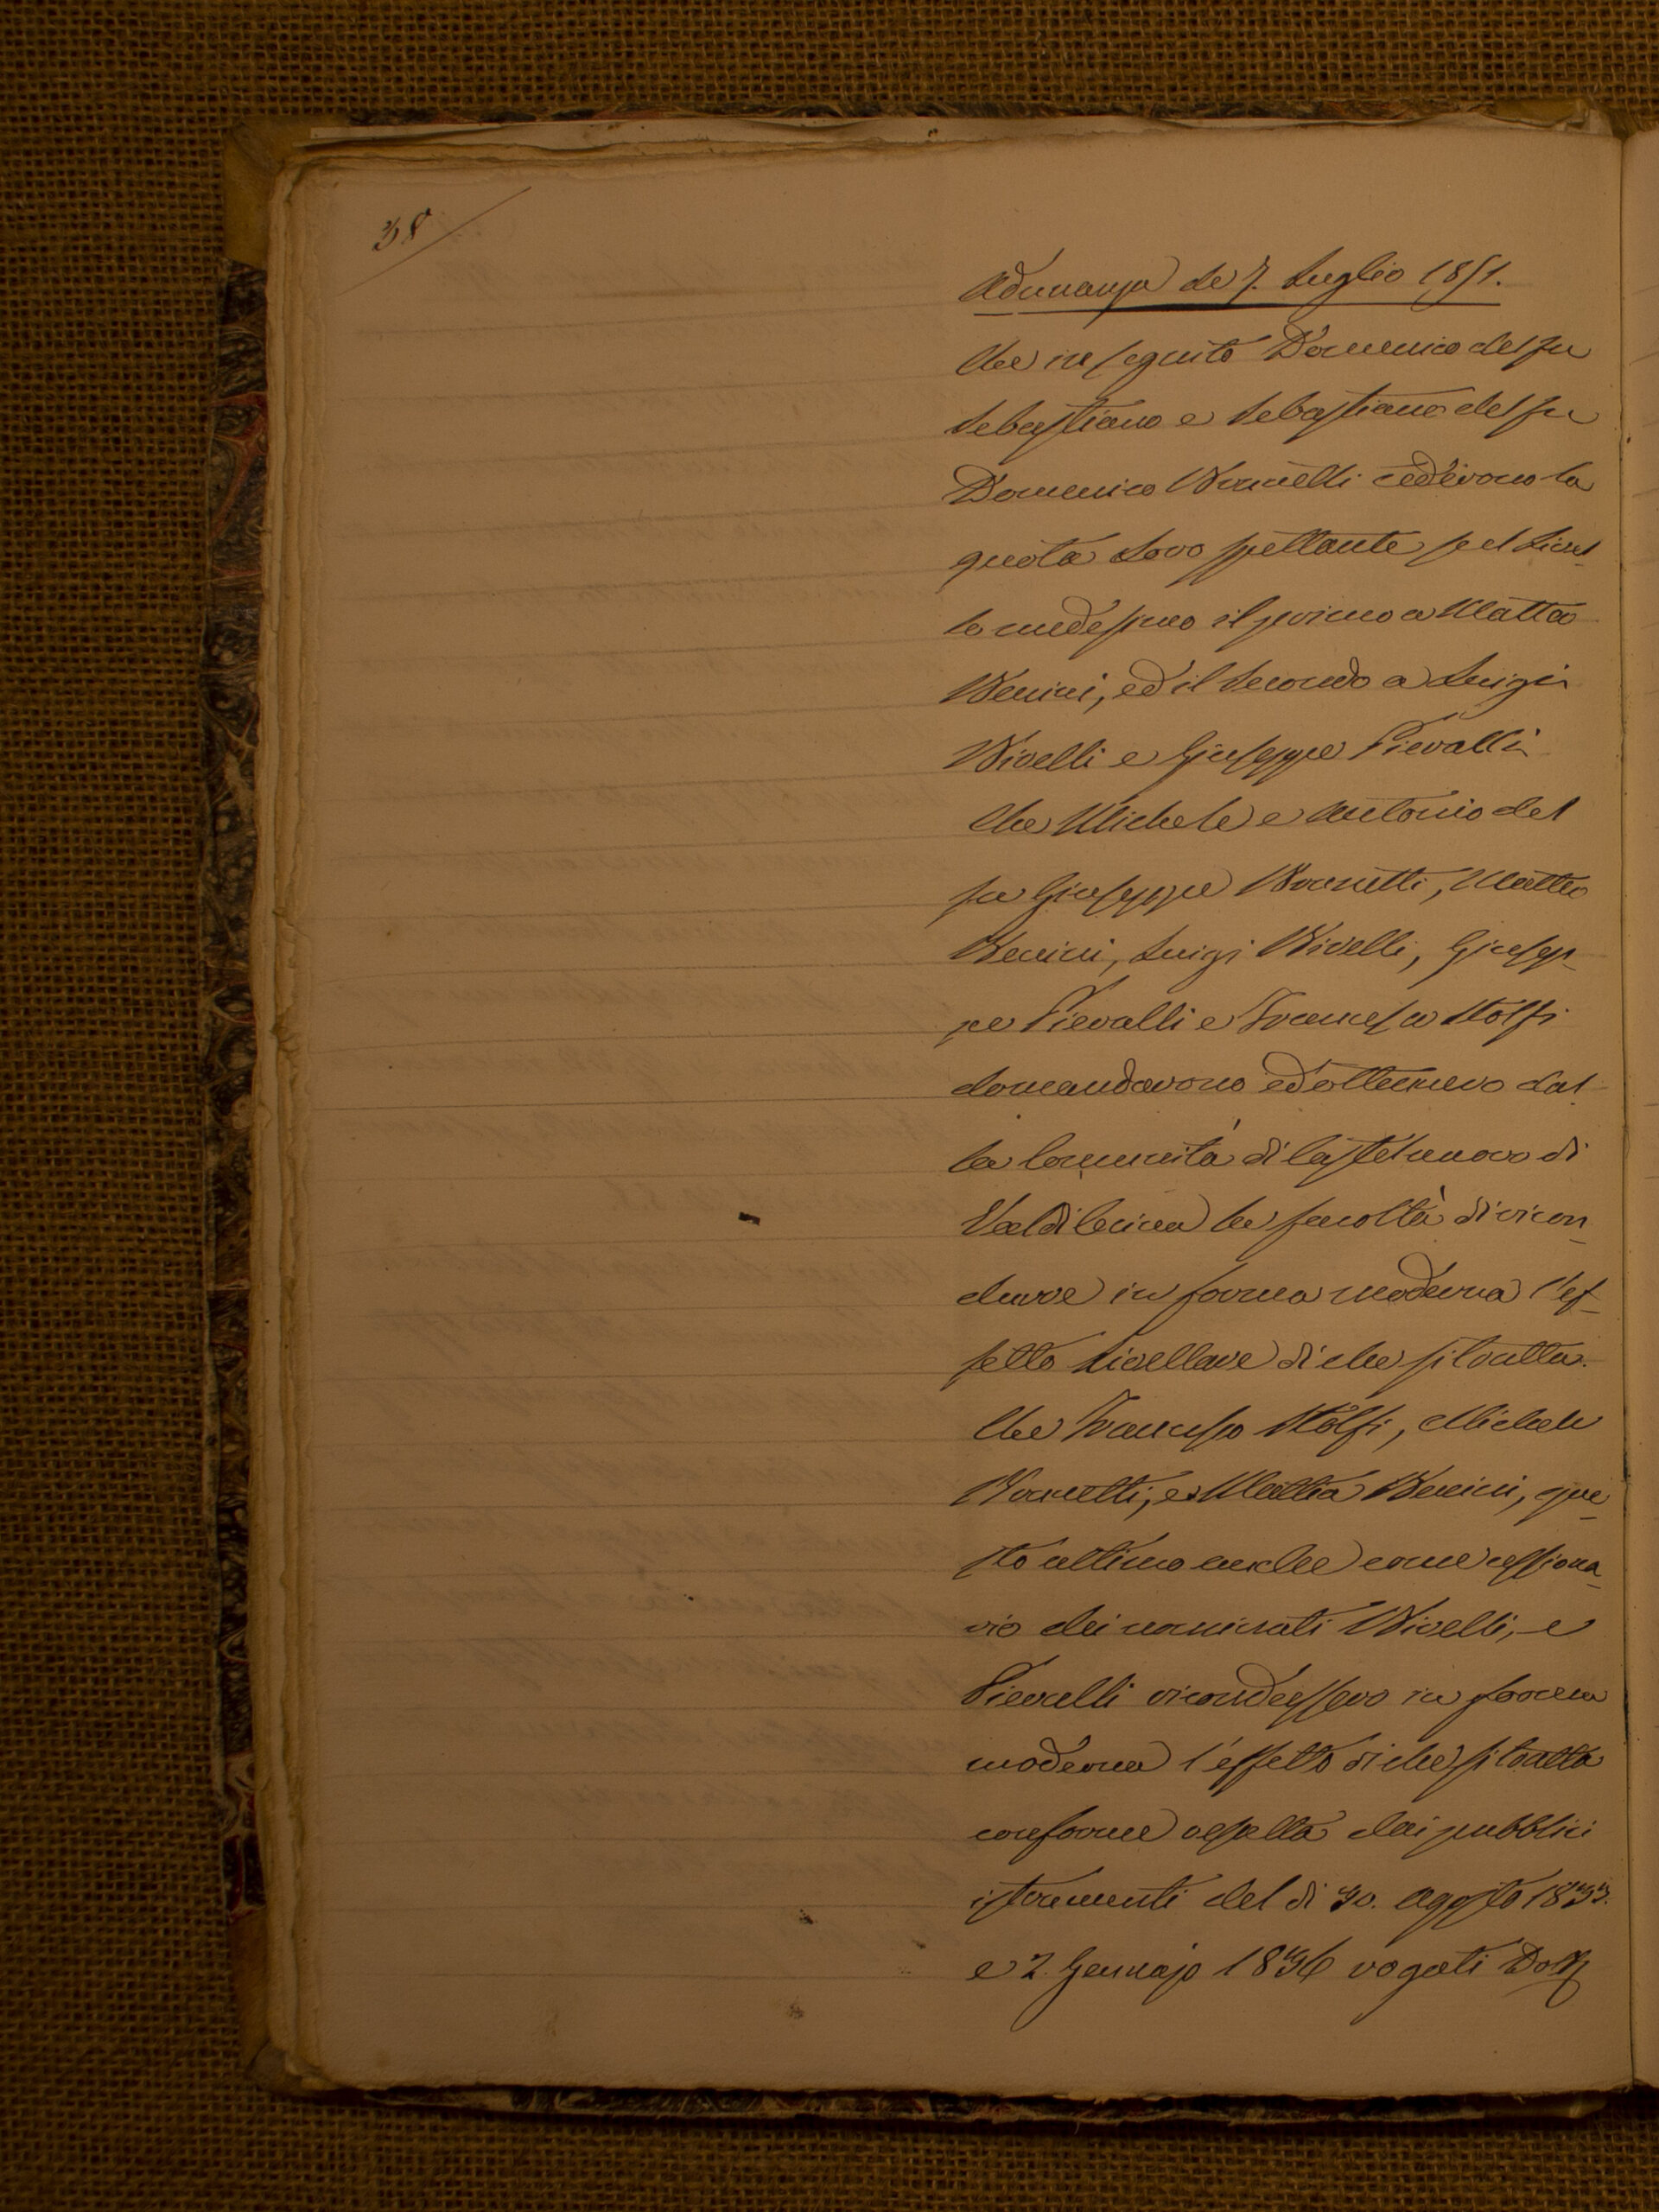 38
Adunanza de 7. Luglio 1851.
Che in seguito Domenico del fu
Sebastiano e Sebastiano del fu
Domenico Bonnetti cedèrono la
quota Loro spettante sul Livel-
lo medesimo il primo a Mattia
Benini, ed il Secondo a Luigi
Bivelli e Giuseppe Pievalli
Che Michele e Antonio del
fu Giuseppe Bonnetti, Matteo
Benini, Luigi Bivelli, Giusep-
pe Pievalli e Francesco Stolfi
domandarono ed ottennero dal
la Comunità di Castelnuovo di
Val di Cecina la facoltà di ricon-
durre in forma moderna l'ef-
fetto Livellare di che si tratta.
Che Francesco Stolfi, Michele
Bonnetti, e Mattia Benini, que-
sto ultimo anche come cessiona-
rio dei nominati Bivelli, e
Pievalli ricondussero in forma
moderna l'effetto di che si tratta
conforme resulta dai pubblici
istrumenti del di 30. Agosto 1833.
e 2. Gennajo 1836 rogati Dott